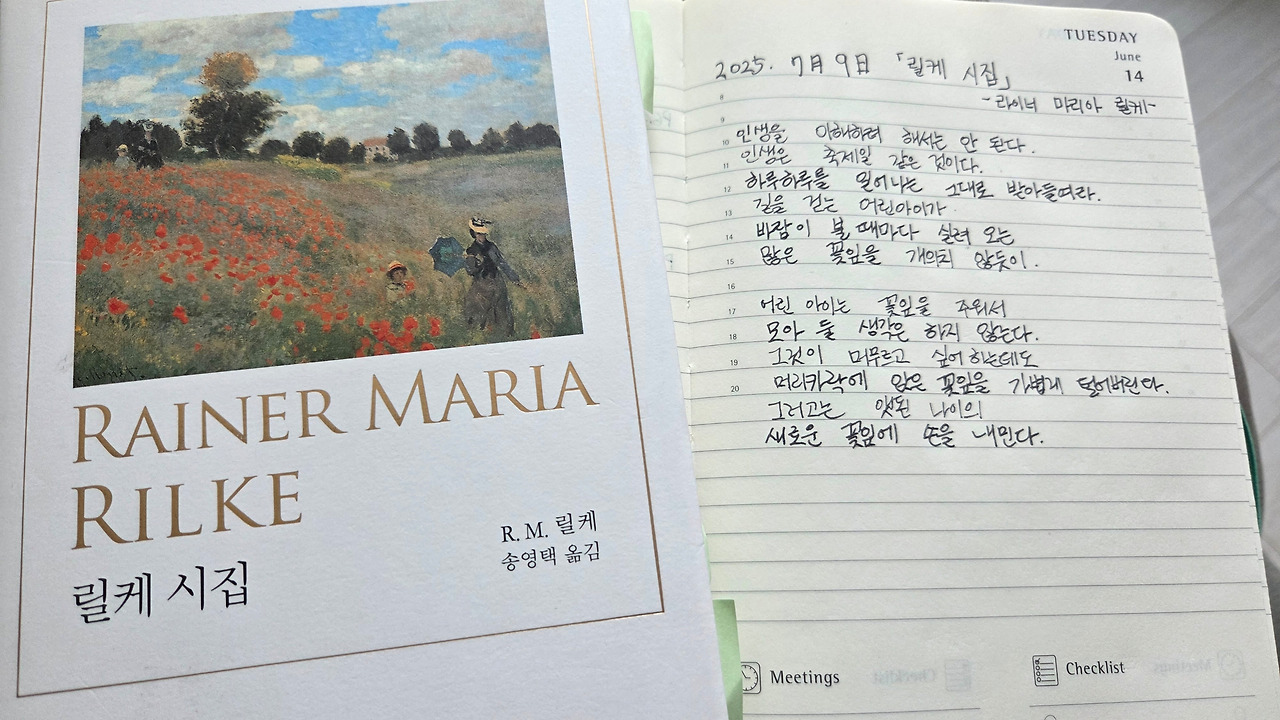 RAINER MARIA
RILKE
릴케 시집
R. M. 릴케
송영택 옮김
TUESDAY
June
14
2025. 7月 9日 「릴케 시집」
-라이너 마리아 릴케-
8
9
10 인생을 이해하려 해서는 안 된다.
11 인생은 축제일 같은 것이다.
12 하루하루를 일어나는 그대로 받아들여라.
13 길을 걷는 어린아이가
14 바람이 불 때마다 실려 오는
15 많은 꽃잎을 개의치 않듯이.
16
17 어린 아이는 꽃잎을 주워서
18 모아 둘 생각은 하지 않는다.
19 그것이 머무르고 싶어 하는데도
20 머리카락에 앉은 꽃잎을 가볍게 털어버린다.
그러고는 앳된 나이의
새로운 꽃잎에 손을 내민다.
Meetings
Checklist